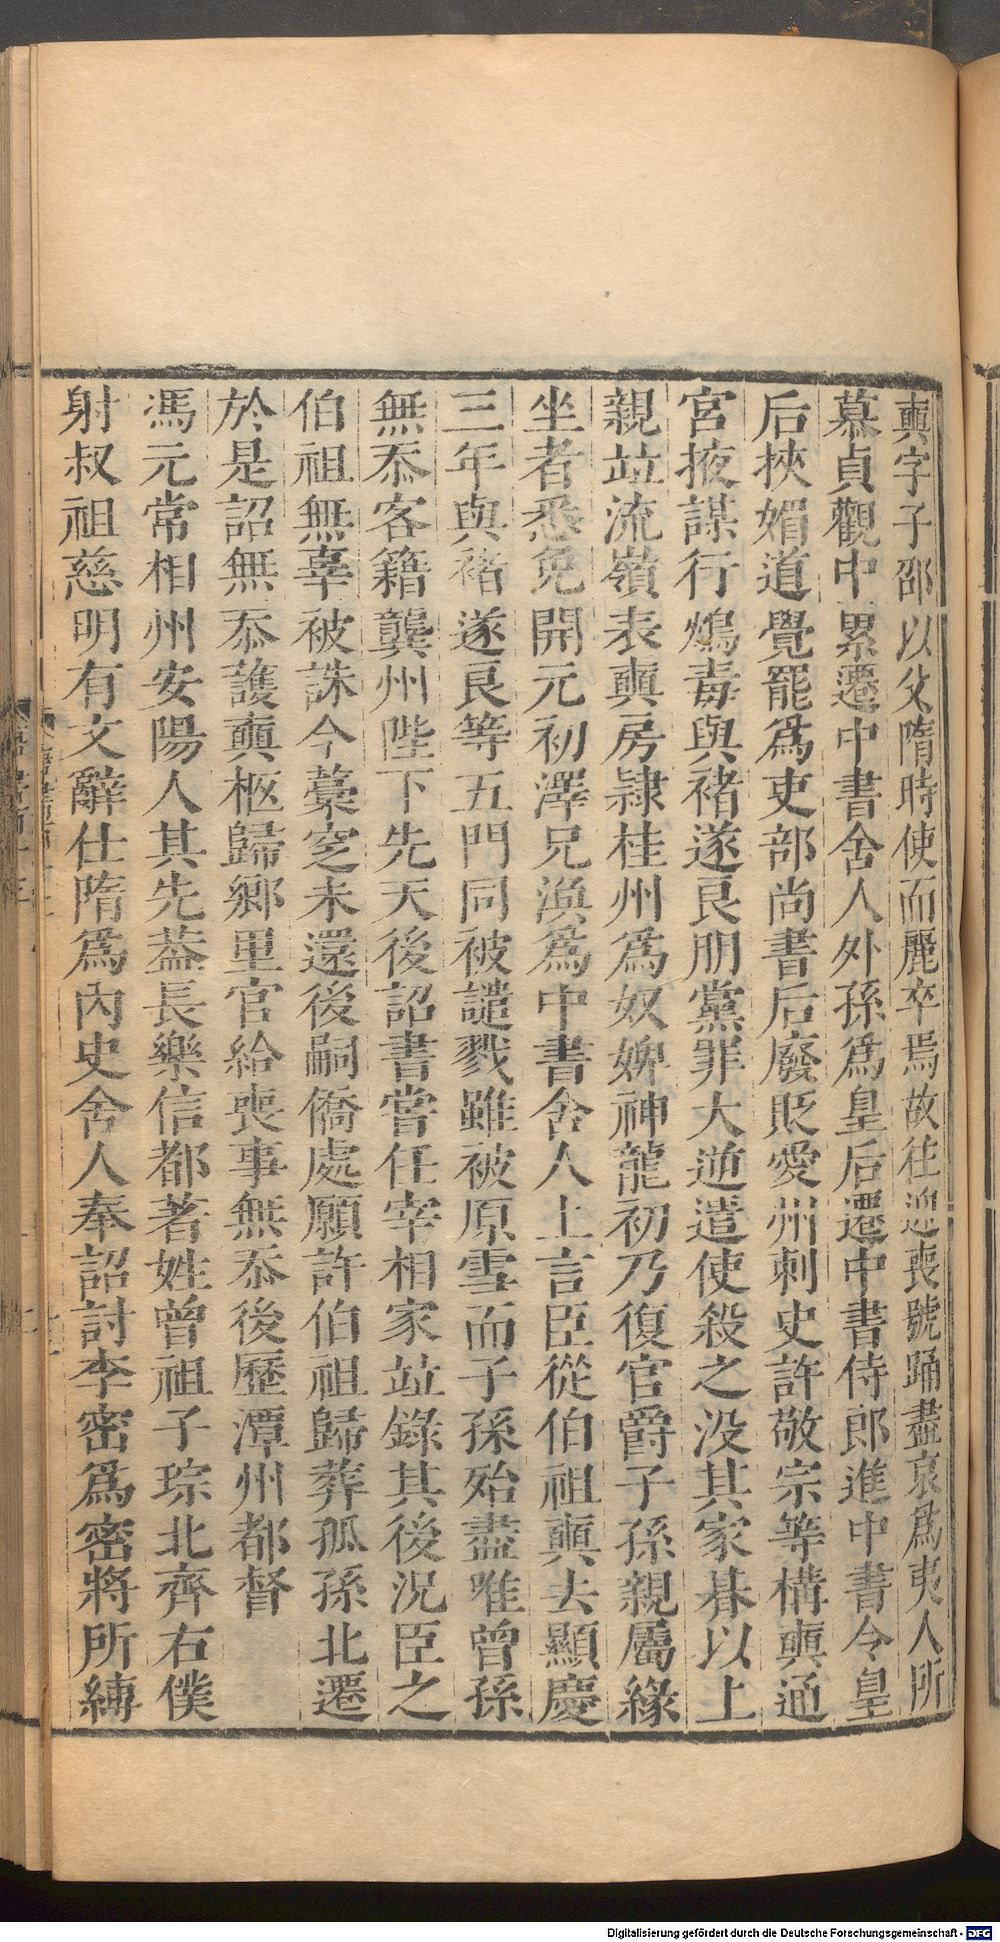 奭字子邵以父隋時使而麗卒焉故往迎喪號踊盡哀爲夷人所
慕貞觀中累遷中書舍人外孫爲皇后遷中書侍郎進中書令皇
后挾媚道覺罷爲吏部尚書后廢貶愛州刺史許敬宗等構奭通
宮掖謀行鴆毒與褚遂良朋黨罪大逆遣使殺之没其家朞以上
親竝流嶺表奭房隷桂州爲奴婢神龍初乃復官爵子孫親屬緣
坐者悉免開元初澤兄渙爲中書舍人上言臣從伯祖奭去顯慶
三年與褚遂良等五門同被譴戮雖被原雪而子孫殆盡唯曾孫
無忝客籍龔州陛下先天後詔書嘗任宰相家竝錄其後況臣之
伯祖無辜被誅今藁窆未還後嗣僑處願許伯祖歸葬孤孫北遷
於是詔無忝護奭柩歸鄉里官給喪事無忝後歷潭州都督
馮元常相州安陽人其先葢長樂信都著姓曾祖子琮北齊右僕
射叔祖慈明有文辭仕隋爲內史舍人奉詔討李密爲密將所縛
Digitalisierung gefördert durch die Deutsche Forschungsgemeinschaft - DFG